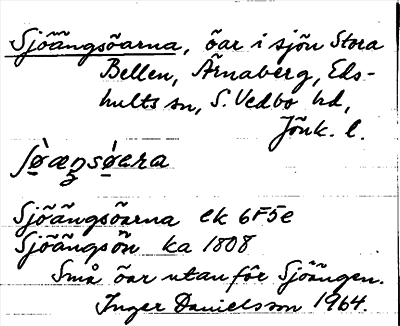 Sjöängsöarna, öar i sjön Stora
Bellen, Ärnaberg, Eds-
hults sn, S. Vedbo hd,
Jönk. l.
Sjöängsöarna ek 6F5e
Sjöängsön ka 1808
Små öar utanför Sjöängen.
Inger Danielsson 1964.